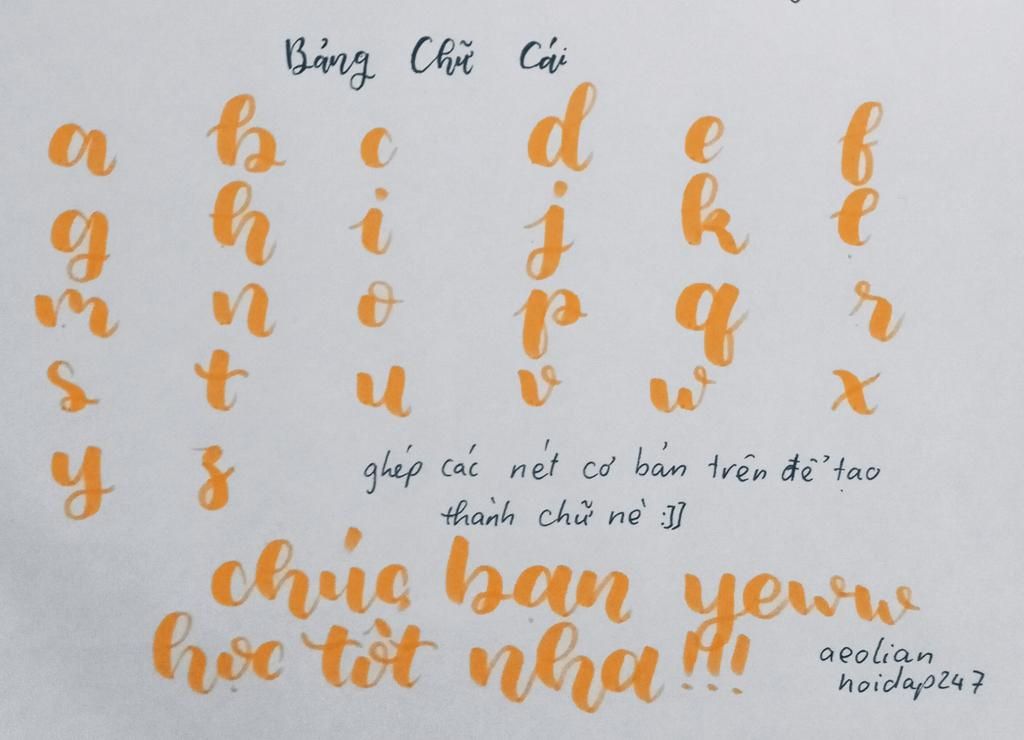 Bảng Chữ Cái
a b c d e f
g h i j k l
m n o p q r
s t u v w x
y z
ghép các nét cơ bản trên để tạo
thành chữ nè :]]
chúc bạn yeww
học tốt nha !!!
aeolian
hoidap247